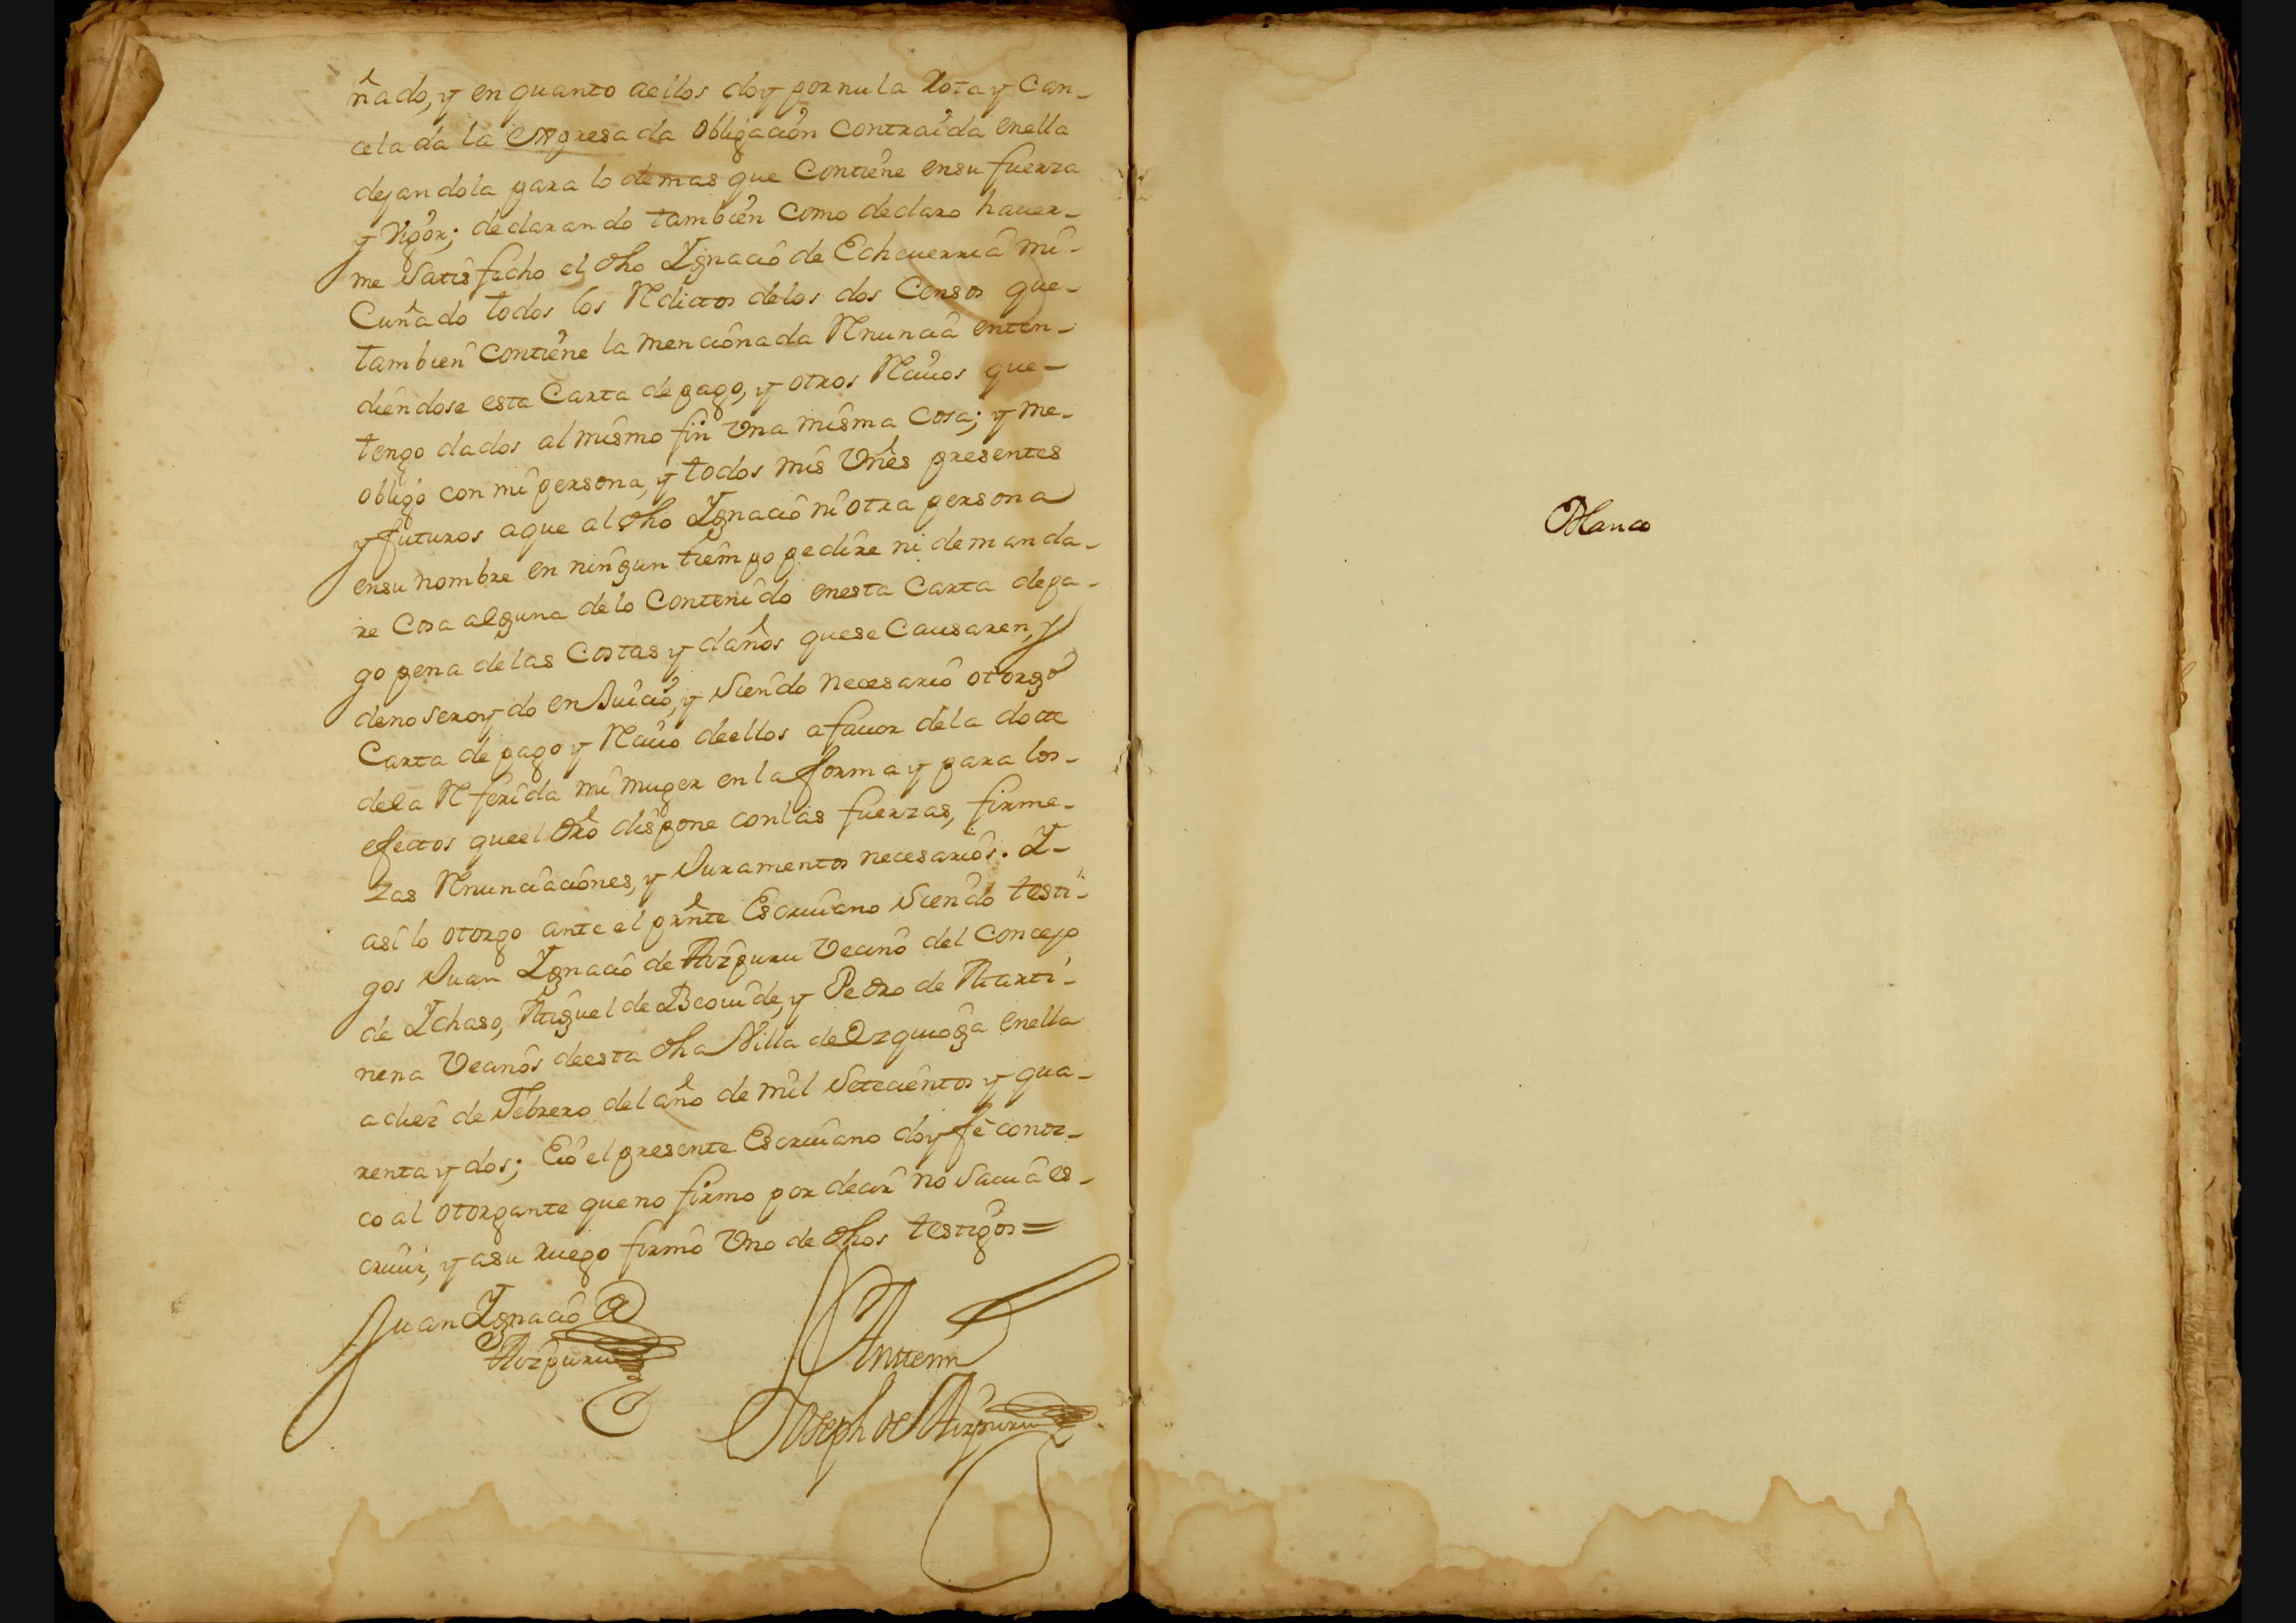 ñado, y en quanto aellos doy por nula Rota y Can-
celada la expresada obligación contraida enella
dejandola para lo demas que Contiene ensu fuerza
y Vigor; declarando tambien como declaro hauer-
me Satisfecho el dho Ygnacio de Echeuerria mi-
Cuñado todos los Reditos delos dos Censos que-
tambien Contiene la mencionada Renuncia enten-
diendose esta Carta de pago, y otros Reciuos que-
tengo dados al mismo fin Una misma Cosa; y me-
obligo con mi persona, y todos mis Vnes presentes
y futuros aque al dho Ygnacio ni otra persona
ensu nombre en ningun tiempo pedire ni demanda-
re Cosa alguna delo Contenido enesta Carta depa-
go pena delas Costas y daños quese Causaren, y
deno seroydo en Juicio, y Siendo necesario otorgo
Carta de pago y Reciuo deellos afauor dela dotte
dela Referida mi muger en la forma y para los-
efectos queel dro dispone conlas fuerzas, firme-
zas Renunciaciones, y Juramentos necesarios. Y-
asi lo otorgo ante el prnte Escriuano Siendo testi-
gos Juan Ygnacio de Aizpuru Vecino del Concejo
de Ychaso, Miguel de Beouide, y Pedro de Marti-
nena Vecinos deesta dha Villa de Ezquioga enella
a diez de Febrero del año de mil Setecientos y qua-
renta y dos; Eio el presente Escriuano doy fè conoz-
co al otorgante que no firmo por decir no Sauia es-
criuir, y asu ruego firmò Uno de dhos testigos=
Juan Ygnacio de
Aizpuru
Anttemi
Joseph de Aizpuru
Blanco